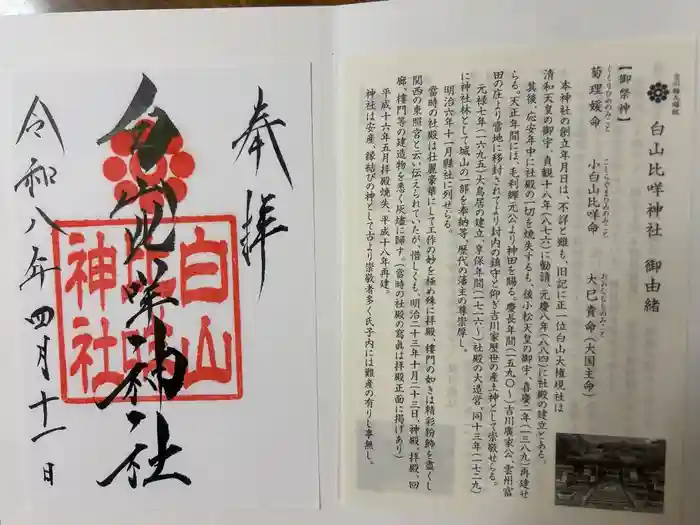 奉拝
白山比咩神社
令和八年四月十一日
白山
神社
白山比咩神社 御由緒
【御祭神】
くくりひめのみこと
菊理媛命
小白山比咩命
おおなむちのみこと
大巳貴命(大国主命)
本神社の創立年月日は、不詳と雖も、旧記に正一位白山大権現社は
清和天皇の御宇、貞観十八年(八七六)に勧請、元慶八年(八八四)に社殿の建立とある。
其後、応安年中に社殿の一切を焼失するも、後小松天皇の御宇、喜慶二年(一三八九)再建せ
らる。天正年間には、毛利輝元公より神田を賜る。慶長年間(一五九〇〜)吉川廣家公、雲州富
田の庄より當地に移封されてより封内の鎮守と仰ぎ吉川家歴世の産土神として崇敬せらる。
元禄七年(一六九五)大鳥居の建立、享保年間(一七一六〜)社殿の大造営、同十三年(一七二九)
に神社林として城山の一部を奉納等、歴代の藩主の尊崇厚し。
明治六年十一月縣社に列せらる。
當時の社殿は壮麗豪華にして工作の妙を極め殊に拝殿、樓門の如きは精彩粉飾を盡くし
関西の東照宮と云い伝えられていたが、惜しくも、明治二十三年十月二十三日、神殿、拝殿、回
廊、樓門等の建造物を悉く灰燼に帰す。(當時の社殿の寫眞は拝殿正面に掲げあり)
平成十六年五月拝殿焼失、平成十八年再建。
神社は安産、縁結びの神として古より崇敬者多く氏子内には難産の有りし事無し。